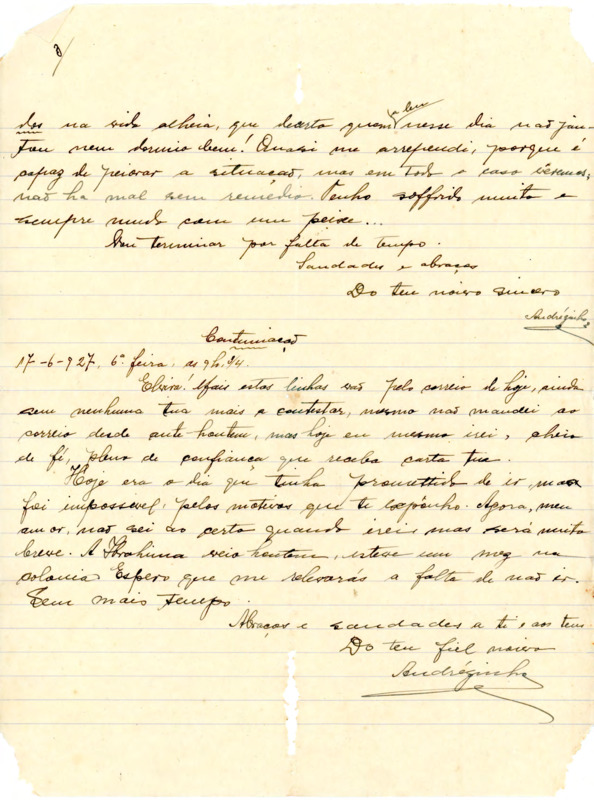 dos na vida alheia, que decerto quem leu nesse dia não jan-
tou nem dormio bem! Quasi me arrependi, porque é
capaz de peiorar a situação, mas em todo o caso veremos,
não ha mal sem remédio. Tenho soffrido muito e
sempre mudo com um peixe...
Vou terminar por falta de tempo.
Saudades e abraços
Do teu noivo sincero
Andrézinho
Continuação
17-6-927, 6ª feira, as 9h 1/4.
Elvira! Mais estas linhas vão pelo correio de hoje, ainda
sem nenhuma tua mais a contestar, mesmo não mandei ao
correio desde ante hontem, mas hoje eu mesmo irei, cheio
de fé, pleno de confiança que receba carta tua.
Hoje era o dia que tinha promettido de ir, mas
foi impossivel, pelos motivos que te expônho. Agora, meu
amor, não sei ao certo quando ireis mas será muito
breve. A Ibrahima veio hontem, esteve um mez na
colonia. Espero que me relevarás a falta de não ir.
Sem mais tempo.
Abraços e saudades a ti e aos teus
Do teu fiel noivo
Andrézinho